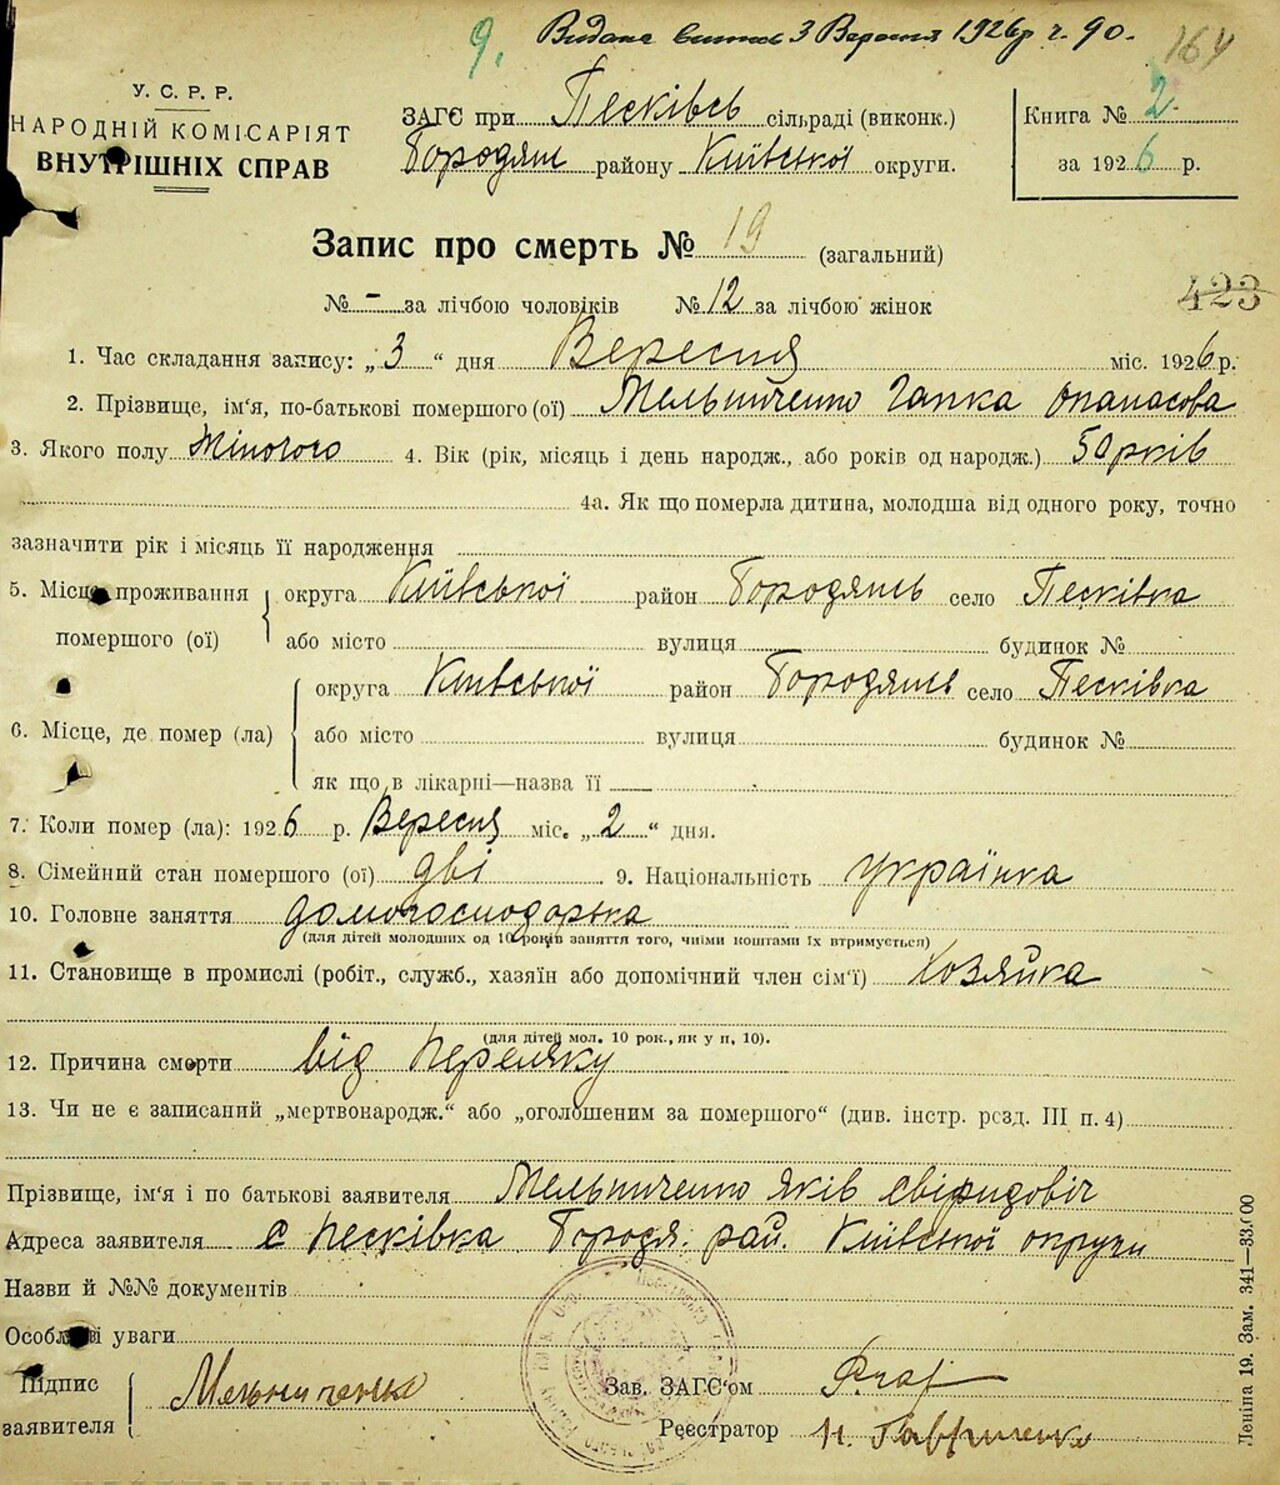 9. Видана витяг 3 Вересня 1926р ч. 90. 164
У. С. Р. Р.
НАРОДНІЙ КОМІСАРІЯТ
ВНУТРІШНІХ СПРАВ
ЗАГС при Песківсь сільраді (виконк.)
Бородянс району Київської округи.
Книга № 2
за 1926 р.
Запис про смерть № 19 (загальний)
№ - за лічбою чоловіків № 12 за лічбою жінок
423
1. Час складання запису: „3“ дня Вересня міс. 1926 р.
2. Прізвище, ім‘я, по-батькові помершого (ої) Мельниченко Гапка Опанасова
3. Якого полу Жіночого 4. Вік (рік, місяць і день народж., або років од народж.) 50 рків
4а. Як що померла дитина, молодша від одного року, точно
зазначити рік і місяць її народження
5. Місце проживання помершого (ої) округа Київської район Бородянсь село Песківка
або місто вулиця будинок №
6. Місце, де помер (ла) округа Київської район Бородянсь село Песківка
або місто вулиця будинок №
як що в лікарні—назва її
7. Коли помер (ла): 1926 р. Вересня міс. „2“ дня.
8. Сімейний стан помершого (ої) дві 9. Національність українка
10. Головне заняття домогосподорька
(для дітей молодших од 10 років заняття того, чиїми коштами їх втримується)
11. Становище в промислі (робіт., служб., хазяїн або допомічний член сім‘ї) хозяйка
(для дітей мол. 10 рок., як у п. 10).
12. Причина смерти від переляку
13. Чи не є записаний „мертвонародж.“ або „оголошеним за помершого“ (див. інстр. розд. III п. 4)
Прізвище, ім‘я і по батькові заявителя Мельниченко Яків Свіридовіч
Адреса заявителя с Песківка Бородя. рай. Київської округи
Назви й №№ документів
Особливі уваги
Підпис заявителя Мельниченко
Зав. ЗАГС‘ом
Реєстратор Н. Гавриленко
Леніна 19. Зам. 341—33.000